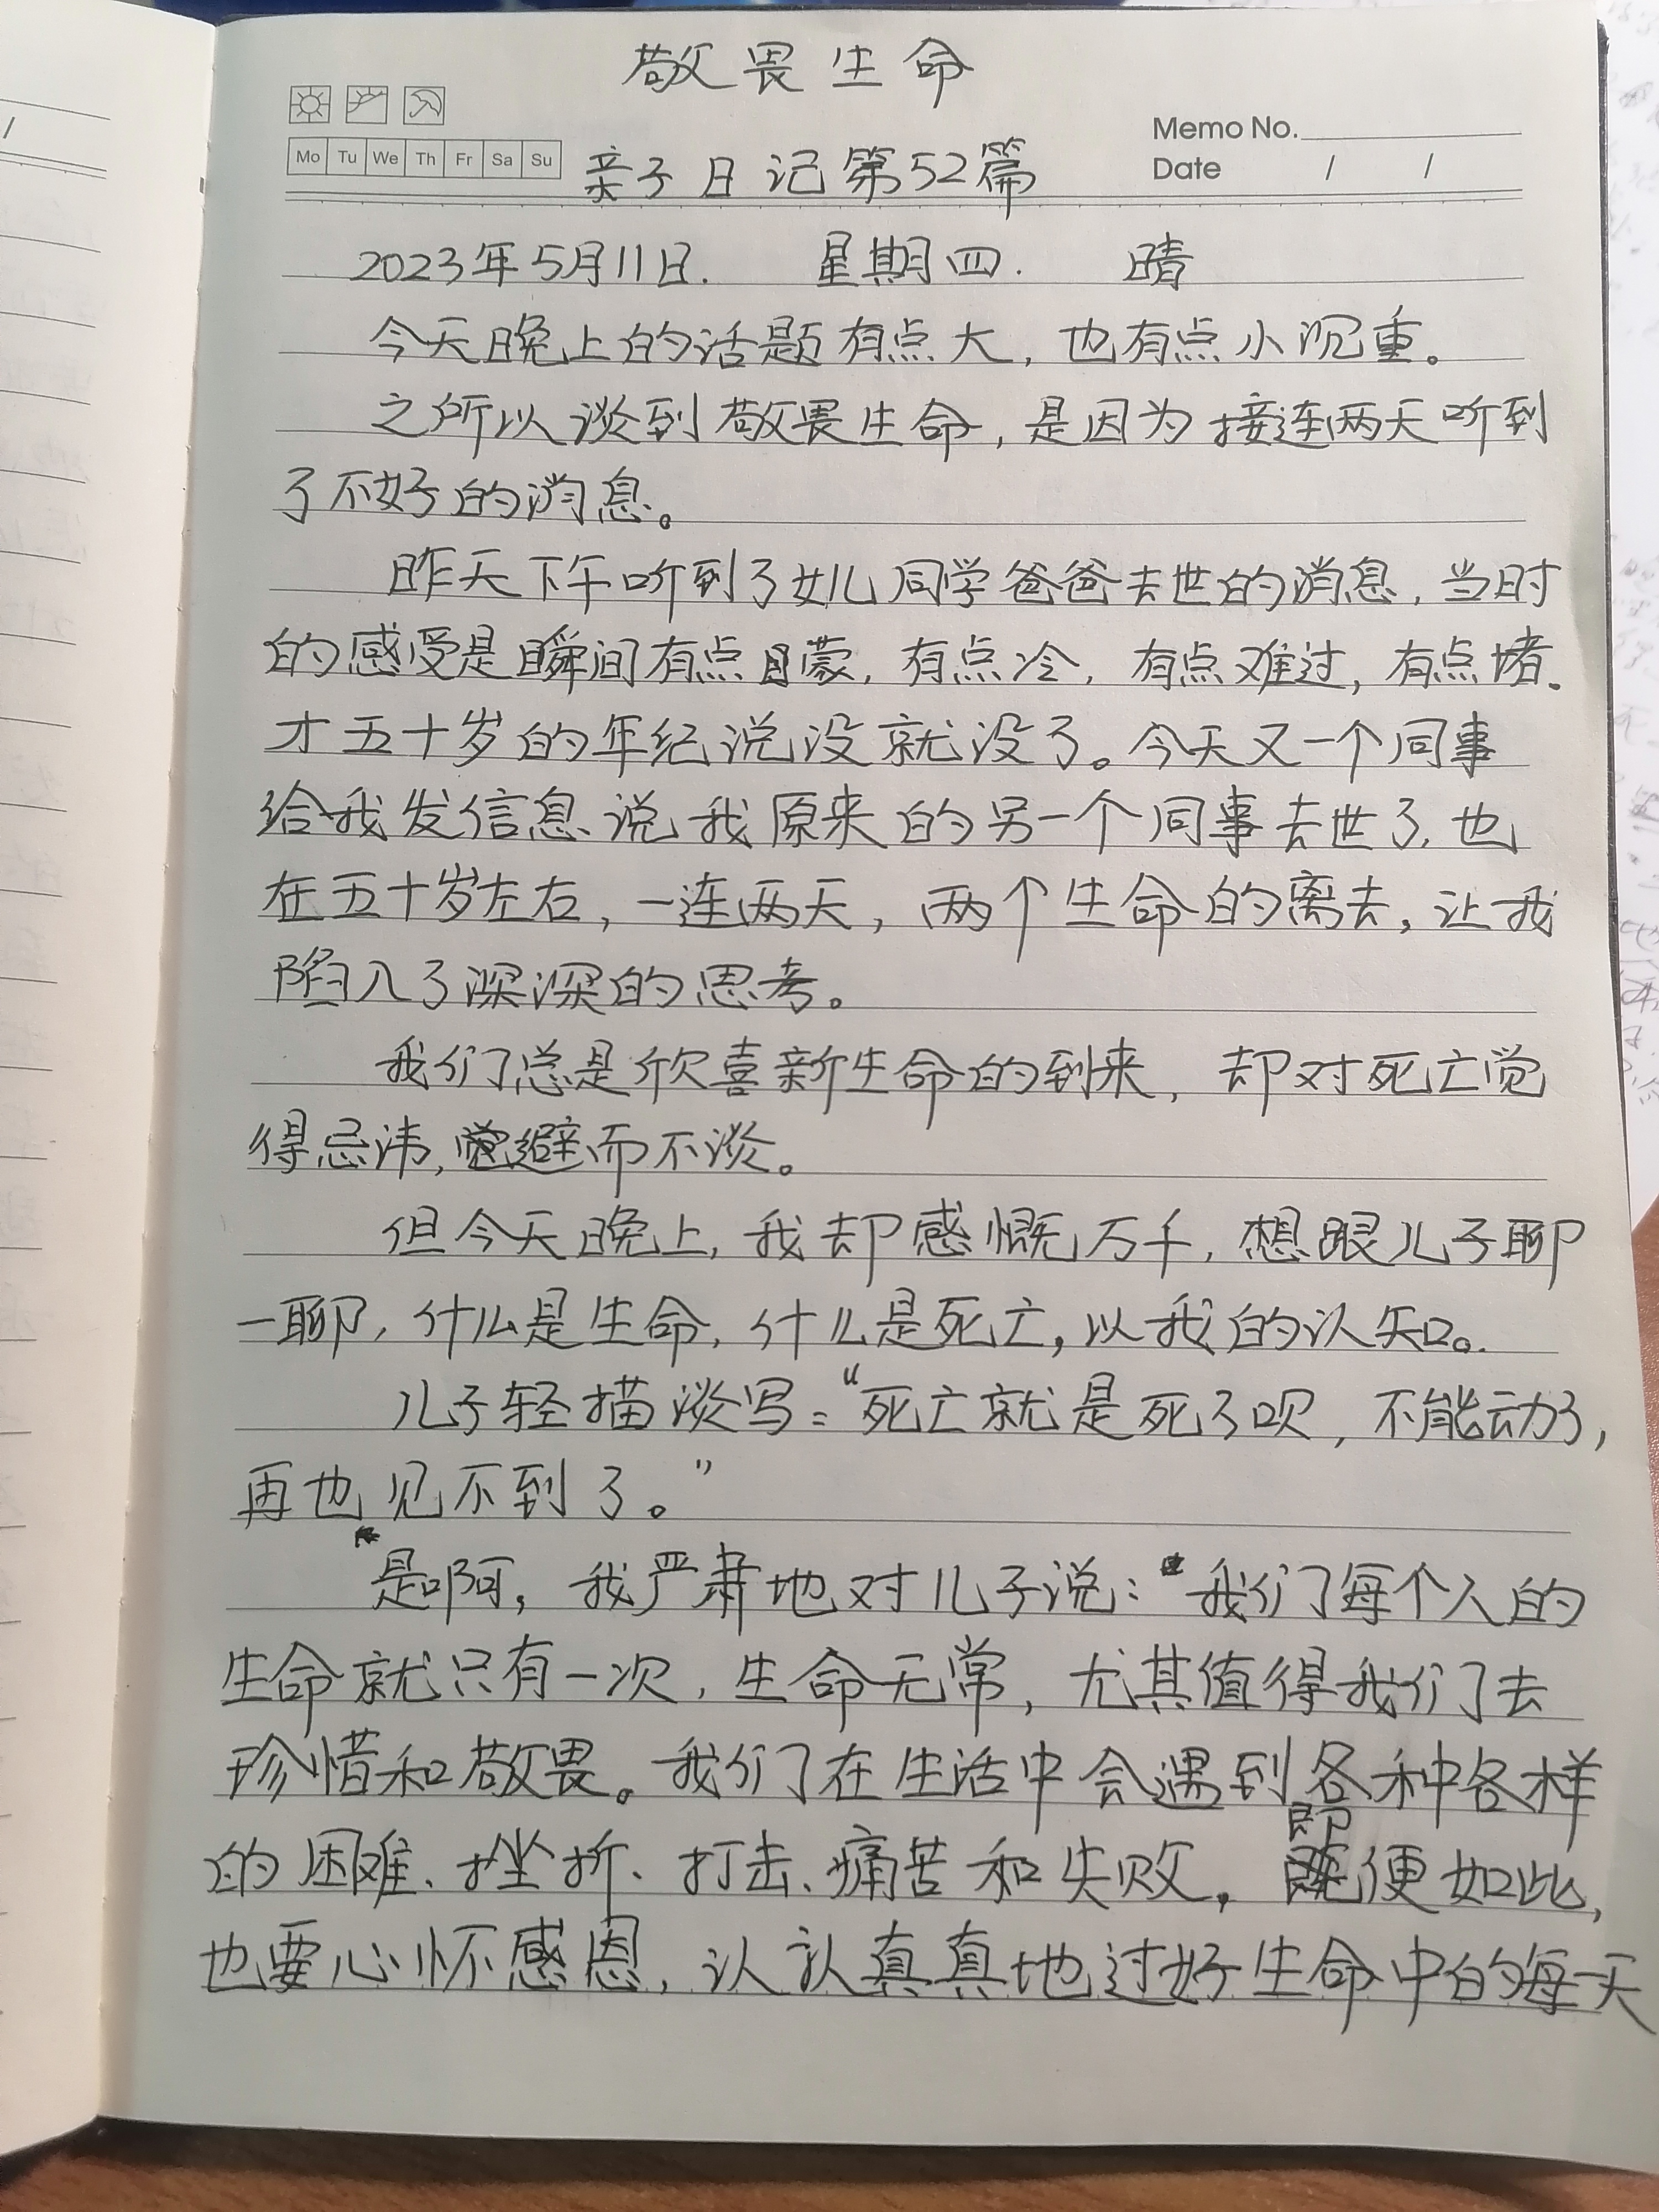 敬畏生命
Memo No.
Mo Tu We Th Fr Sa Su
亲子日记第52篇
Date / /
2023年5月11日. 星期四. 晴
今天晚上的话题有点大，也有点小沉重。
之所以谈到敬畏生命，是因为接连两天听到
了不好的消息。
昨天下午听到了女儿同学爸爸去世的消息，当时
的感受是瞬间有点矇，有点冷，有点难过，有点堵.
才五十岁的年纪说没就没了。今天又一个同事
给我发信息说我原来的另一个同事去世了，也
在五十岁左右，一连两天，两个生命的离去，让我
陷入了深深的思考。
我们总是欣喜新生命的到来，却对死亡觉
得忌讳，避而不谈。
但今天晚上，我却感慨万千，想跟儿子聊
一聊，什么是生命，什么是死亡，以我的认知。
儿子轻描淡写：“死亡就是死了呗，不能动了，
再也见不到了。”
是啊，我严肃地对儿子说：“我们每个人的
生命就只有一次，生命无常，尤其值得我们去
珍惜和敬畏。我们在生活中会遇到各种各样
的困难、挫折、打击、痛苦和失败，即便如此，
也要心怀感恩，认认真真地过好生命中的每一天